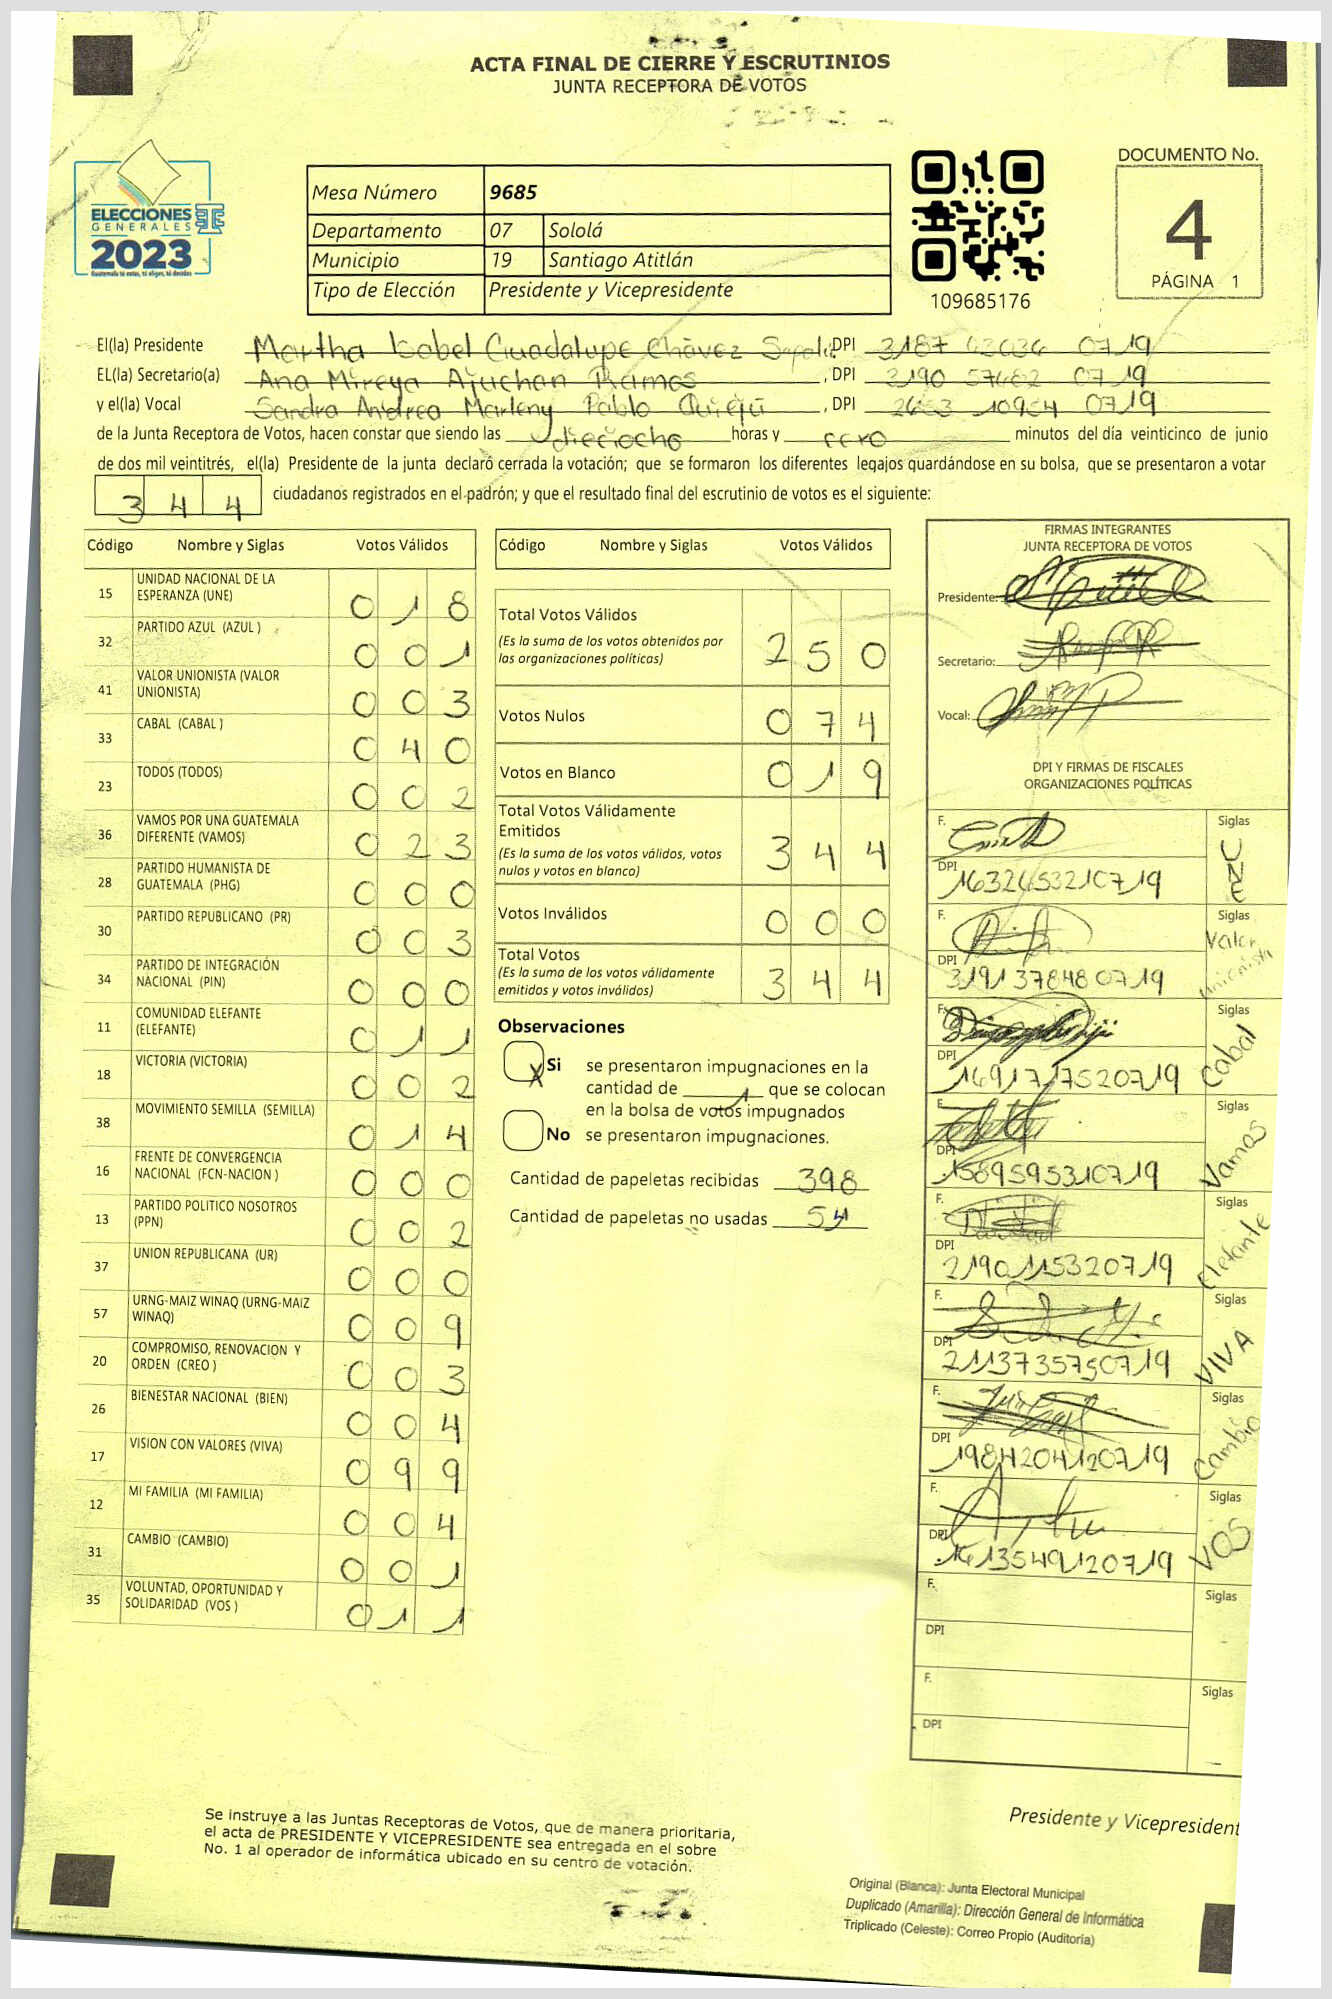 ACTA FINAL DE CIERRE Y ESCRUTINIOS
JUNTA RECEPTORA DE VOTOS
ELECCIONES
GENERALES
2023
Guatemala tú votas, tú eliges, tú decides
Mesa Número 9685
Departamento 07 Sololá
Municipio 19 Santiago Atitlán
Tipo de Elección Presidente y Vicepresidente
109685176
DOCUMENTO No.
4
PÁGINA 1
El(la) Presidente Martha Isabel Guadalupe Chávez DPI 3187 0719
EL(la) Secretario(a) Ana Mireya Ajuchan Ramos , DPI 2190 57682 0719
y el(la) Vocal Sandra Andrea Marleny Pablo Quiejú , DPI 2653 10954 0719
de la Junta Receptora de Votos, hacen constar que siendo las dieciocho horas y cero minutos del día veinticinco de junio
de dos mil veintitrés, el(la) Presidente de la junta declaró cerrada la votación; que se formaron los diferentes legajos guardándose en su bolsa, que se presentaron a votar
3 4 4 ciudadanos registrados en el padrón; y que el resultado final del escrutinio de votos es el siguiente:
Código Nombre y Siglas Votos Válidos
15 UNIDAD NACIONAL DE LA ESPERANZA (UNE) 0 1 8
32 PARTIDO AZUL (AZUL ) 0 0 1
41 VALOR UNIONISTA (VALOR UNIONISTA) 0 0 3
33 CABAL (CABAL ) 0 4 0
23 TODOS (TODOS) 0 0 2
36 VAMOS POR UNA GUATEMALA DIFERENTE (VAMOS) 0 2 3
28 PARTIDO HUMANISTA DE GUATEMALA (PHG) 0 0 0
30 PARTIDO REPUBLICANO (PR) 0 0 3
34 PARTIDO DE INTEGRACIÓN NACIONAL (PIN) 0 0 0
11 COMUNIDAD ELEFANTE (ELEFANTE) 0 1 1
18 VICTORIA (VICTORIA) 0 0 2
38 MOVIMIENTO SEMILLA (SEMILLA) 0 1 4
16 FRENTE DE CONVERGENCIA NACIONAL (FCN-NACION ) 0 0 0
13 PARTIDO POLITICO NOSOTROS (PPN) 0 0 2
37 UNION REPUBLICANA (UR) 0 0 0
57 URNG-MAIZ WINAQ (URNG-MAIZ WINAQ) 0 0 9
20 COMPROMISO, RENOVACION Y ORDEN (CREO ) 0 0 3
26 BIENESTAR NACIONAL (BIEN) 0 0 4
17 VISION CON VALORES (VIVA) 0 9 9
12 MI FAMILIA (MI FAMILIA) 0 0 4
31 CAMBIO (CAMBIO) 0 0 1
35 VOLUNTAD, OPORTUNIDAD Y SOLIDARIDAD (VOS ) 0 1 1
Código Nombre y Siglas Votos Válidos
Total Votos Válidos
(Es la suma de los votos obtenidos por
las organizaciones políticas) 2 5 0
Votos Nulos 0 7 4
Votos en Blanco 0 1 9
Total Votos Válidamente
Emitidos
(Es la suma de los votos válidos, votos
nulos y votos en blanco) 3 4 4
Votos Inválidos 0 0 0
Total Votos
(Es la suma de los votos válidamente
emitidos y votos inválidos) 3 4 4
Observaciones
X Si se presentaron impugnaciones en la
cantidad de 1 que se colocan
en la bolsa de votos impugnados
No se presentaron impugnaciones.
Cantidad de papeletas recibidas 398
Cantidad de papeletas no usadas 54
FIRMAS INTEGRANTES
JUNTA RECEPTORA DE VOTOS
Presidente:
Secretario:
Vocal:
DPI Y FIRMAS DE FISCALES
ORGANIZACIONES POLÍTICAS
F. Siglas UNE
DPI 1632453210719
F. Siglas Valor unionista
DPI 3191378480719
F. Siglas Cabal
DPI 1491717520719
F. Siglas Vamos
DPI 1589595310719
F. Siglas Elefante
DPI 2190115320719
F. Siglas VIVA
DPI 2113735750719
F. Siglas Cambio
DPI 1984204120719
F. Siglas VOS
DPI 1613549120719
F. Siglas
DPI
F. Siglas
DPI
Se instruye a las Juntas Receptoras de Votos, que de manera prioritaria,
el acta de PRESIDENTE Y VICEPRESIDENTE sea entregada en el sobre
No. 1 al operador de informática ubicado en su centro de votación.
Presidente y Vicepresident
Original (Blanca): Junta Electoral Municipal
Duplicado (Amarilla): Dirección General de Informática
Triplicado (Celeste): Correo Propio (Auditoría)